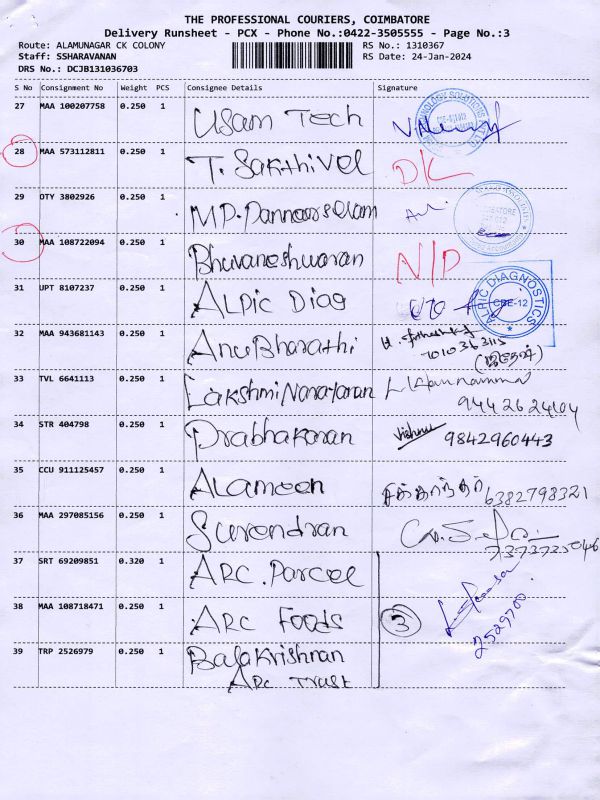 THE PROFESSIONAL COURIERS, COIMBATORE
Delivery Runsheet - PCX - Phone No.:0422-3505555 - Page No.:3
Route: ALAMUNAGAR CK COLONY RS No.: 1310367
Staff: SSHARAVANAN RS Date: 24-Jan-2024
DRS No.: DCJB131036703
S No Consignment No Weight PCS Consignee Details Signature
27 MAA 100207758 0.250 1 Usam Tech
28 MAA 573112811 0.250 1 T. Sakthivel DL
29 OTY 3802926 0.250 1 M.P.
30 MAA 108722094 0.250 1 Bhuvaneshwaran N/P
31 UPT 8107237 0.250 1 ALPIC Diag ALPIC DIAGNOSTICS CBE-12
32 MAA 943681143 0.250 1 AnuBharathi
7010363115
33 TVL 6641113 0.250 1 Lakshmi Narayanan
34 STR 404798 0.250 1 Prabhakaran Vishnu 9842960443
35 CCU 911125457 0.250 1 ALameen 6382798321
36 MAA 297085156 0.250 1 Surendran
7373725046
37 SRT 69209851 0.320 1 ARC. Parcel
38 MAA 108718471 0.250 1 ARC Foods 3 2529700
39 TRP 2526979 0.250 1 Balakrishnan
Arc Trust